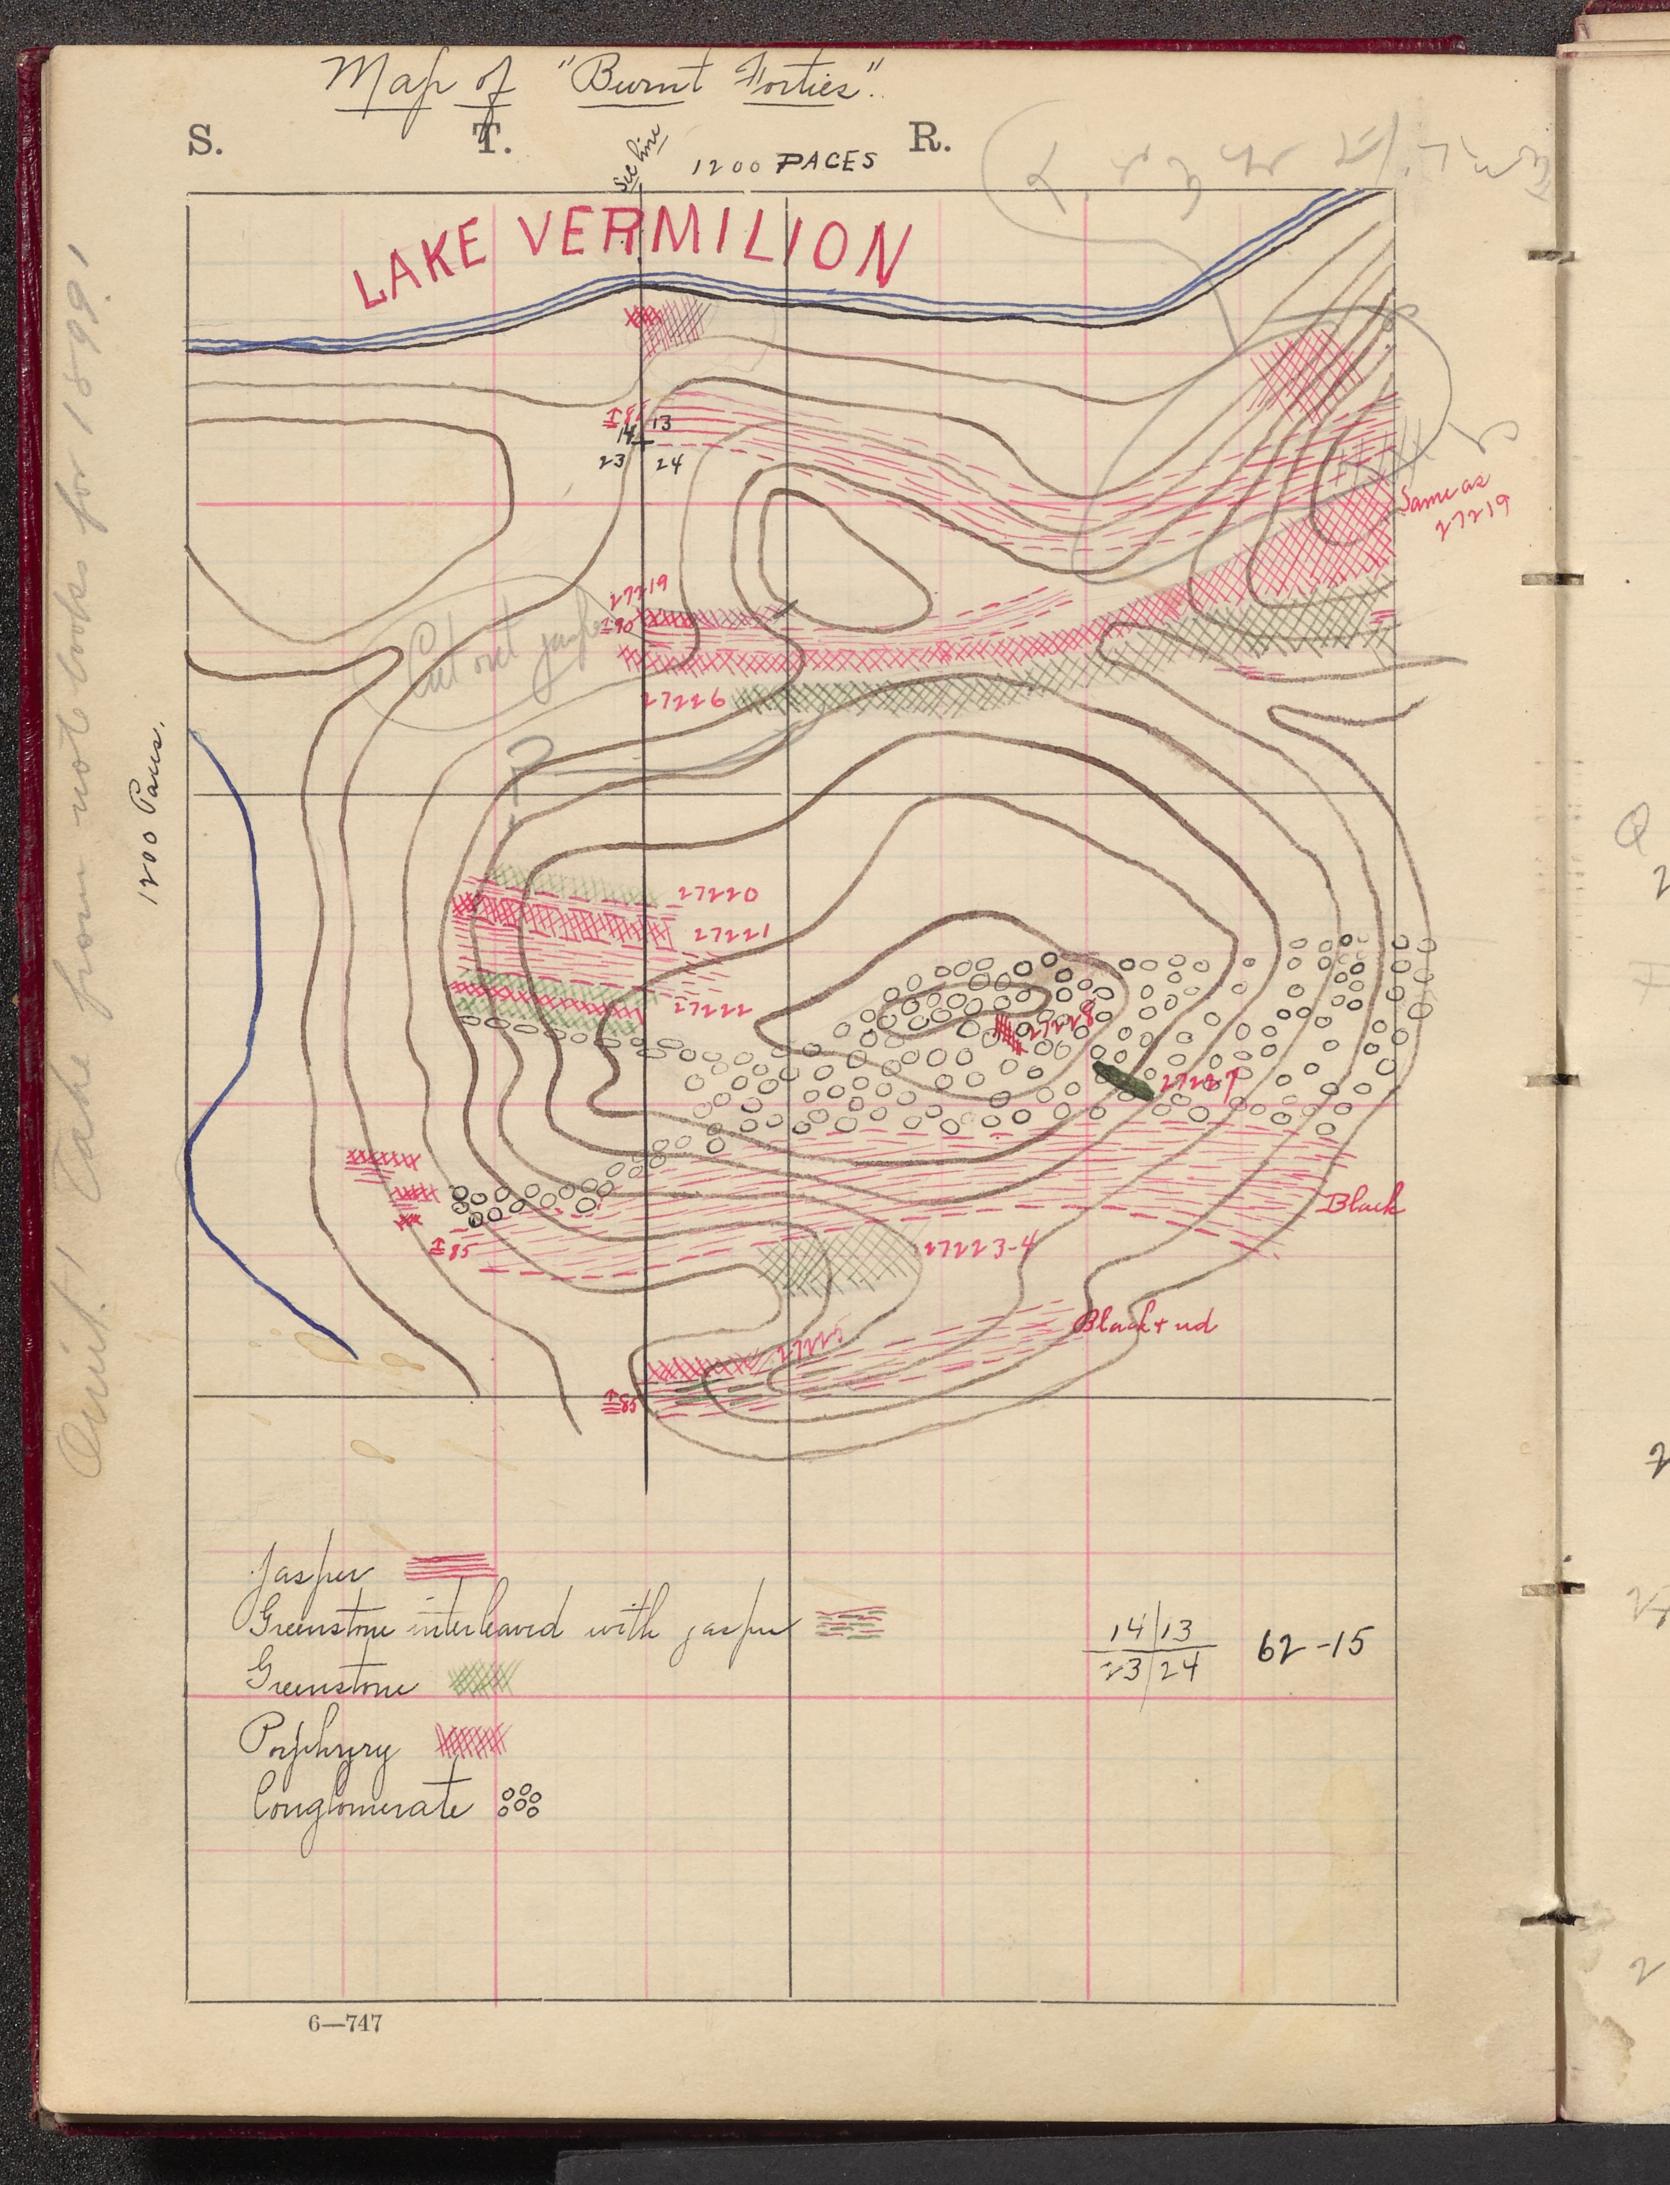 Map of "Burnt Forties".
S. T. R.
Sec line
1200 PACES
LAKE VERMILION
14 13
23 24
Same as
27219
27219
Cut out jasper
27226
1200 Paces.
27220
27221
27222
27228
27227
Black
±85
27223-4
Black + red
27225
±85
Jasper
Greenstone interleaved with jasper
Greenstone
Porphyry
Conglomerate
14 13
23 24
62-15
6—747
Omit! Take from note books for 1899!